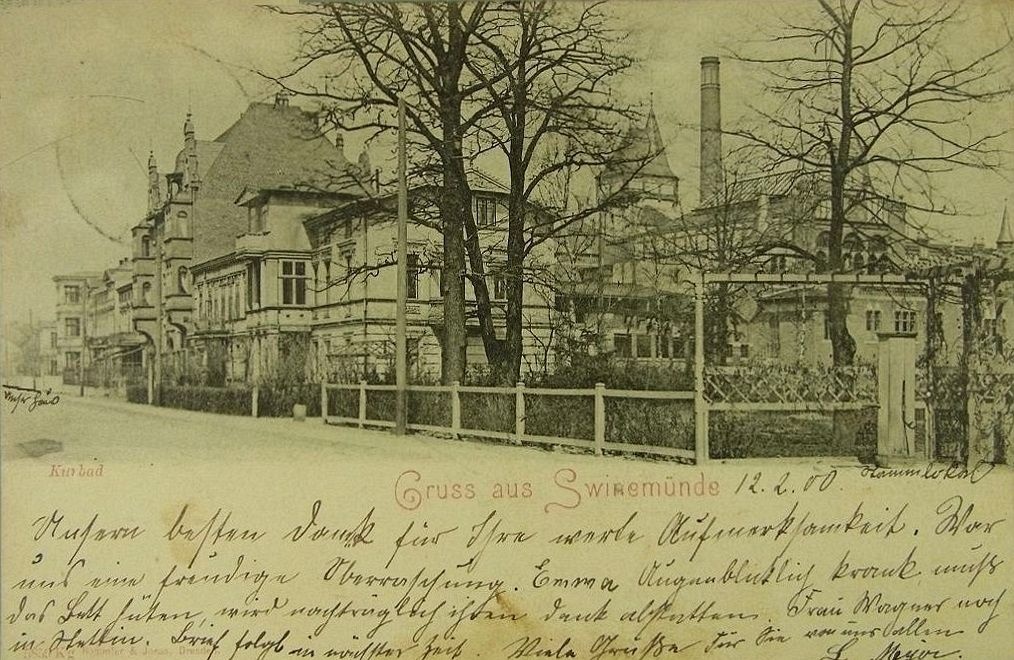 Unser Haus
Kurbad
Gruss aus Swinemünde 12.2.00. Stammlokal
Unsern besten Dank für Ihre werte Aufmerksamkeit. War
uns eine freudige Oberraschung. Emma Augenblicklich krank, muss
das Bett hüten, wird nachträglich ihren dank abstatten. Frau Wagner noch
in Stettin. Brief folgt in nächster Zeit. Viele Grüße für Sie von uns allen
& Jonas, Dresden